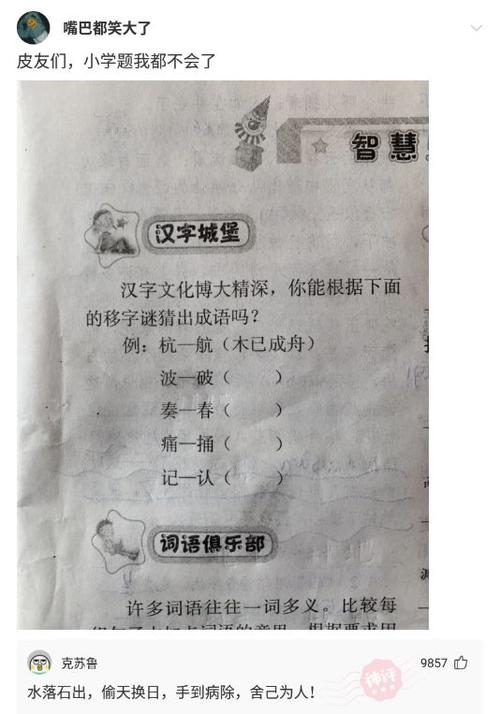 嘴巴都笑大了
皮友们，小学题我都不会了
智慧
汉字城堡
汉字文化博大精深，你能根据下面
的移字谜猜出成语吗？
例：杭—航（木已成舟）
波—破（ ）
奏—春（ ）
痛—捅（ ）
记—认（ ）
词语俱乐部
许多词语往往一词多义。比较每
克苏鲁
9857
水落石出，偷天换日，手到病除，舍己为人！
神评